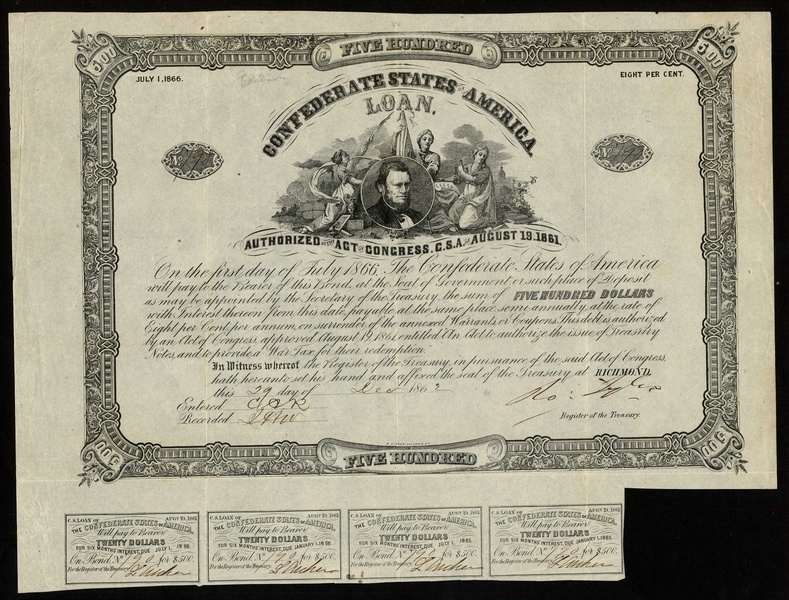 500
FIVE HUNDRED
500
JULY 1, 1866.
EIGHT PER CENT.
CONFEDERATE STATES OF AMERICA.
LOAN.
No
No
AUTHORIZED BY THE ACT OF CONGRESS, C.S.A. OF AUGUST 19. 1861.
On the first day of July 1866, The Confederate States of America
will pay to the Bearer of this Bond, at the Seal of Government, or such place of Deposit
as may be appointed by the Secretary of the Treasury, the sum of FIVE HUNDRED DOLLARS
with Interest thereon from this date, payable at the same place, semi annually, at the rate of
Eight per Cent. per annum, on surrender of the annexed Warrants or Coupons. This debt is authorized
by an Act of Congress, approved August 19, 1861, entitled An Act to authorize the issue of Treasury
Notes, and to provide a War Tax for their redemption.
In Witness whereof, the Register of the Treasury, in pursuance of the said Act of Congress,
hath hereunto set his hand and affixed the seal of the Treasury, at RICHMOND,
this 29 day of Dec 1862
Ro: Tyler
Entered
Register of the Treasury.
Recorded
500
FIVE HUNDRED
500
C.S. LOAN OF AUGT 19, 1861.
THE CONFEDERATE STATES OF AMERICA,
Will pay to Bearer
TWENTY DOLLARS
FOR SIX MONTHS INTEREST, DUE JULY 1,
On Bond No for $500.
For the Register of the Treasury
C.S. LOAN OF AUGT 19, 1861.
THE CONFEDERATE STATES OF AMERICA,
Will pay to Bearer
TWENTY DOLLARS
FOR SIX MONTHS INTEREST, DUE JANUARY 1, 1866.
On Bond No for $500.
For the Register of the Treasury
C.S. LOAN OF AUGT 19, 1861.
THE CONFEDERATE STATES OF AMERICA,
Will pay to Bearer
TWENTY DOLLARS
FOR SIX MONTHS INTEREST, DUE JULY 1, 1865.
On Bond No for $500.
For the Register of the Treasury
C.S. LOAN OF AUGT 19, 1861.
THE CONFEDERATE STATES OF AMERICA,
Will pay to Bearer
TWENTY DOLLARS
FOR SIX MONTHS INTEREST, DUE JANUARY 1, 1865.
On Bond No for $500.
For the Register of the Treasury